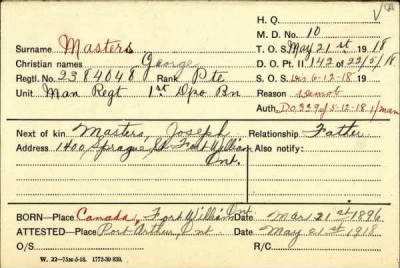 H. Q.
M. D. No. 10
Surname Masters T. O. S. May 21st 1918
Christian names George D. O. Pt. II 142 of 22/5/18
Regtl. No. 2384048 Rank Pte S. O. S. Dis 6-12-18 19
Unit Man Regt 1st Dpo Bn Reason Demob
Auth. DO 339 of 5-12-18 1/man
Next of kin Masters, Joseph Relationship Father
Address 1400 Sprague St Fort William Also notify:
Ont.
BORN—Place Canada, Fort William Ont Date Mar 21st 1896
ATTESTED—Place Port Arthur, Ont Date May 21st 1918
O/S R/C
W. 22—75m-5-18. 1772-39 839.